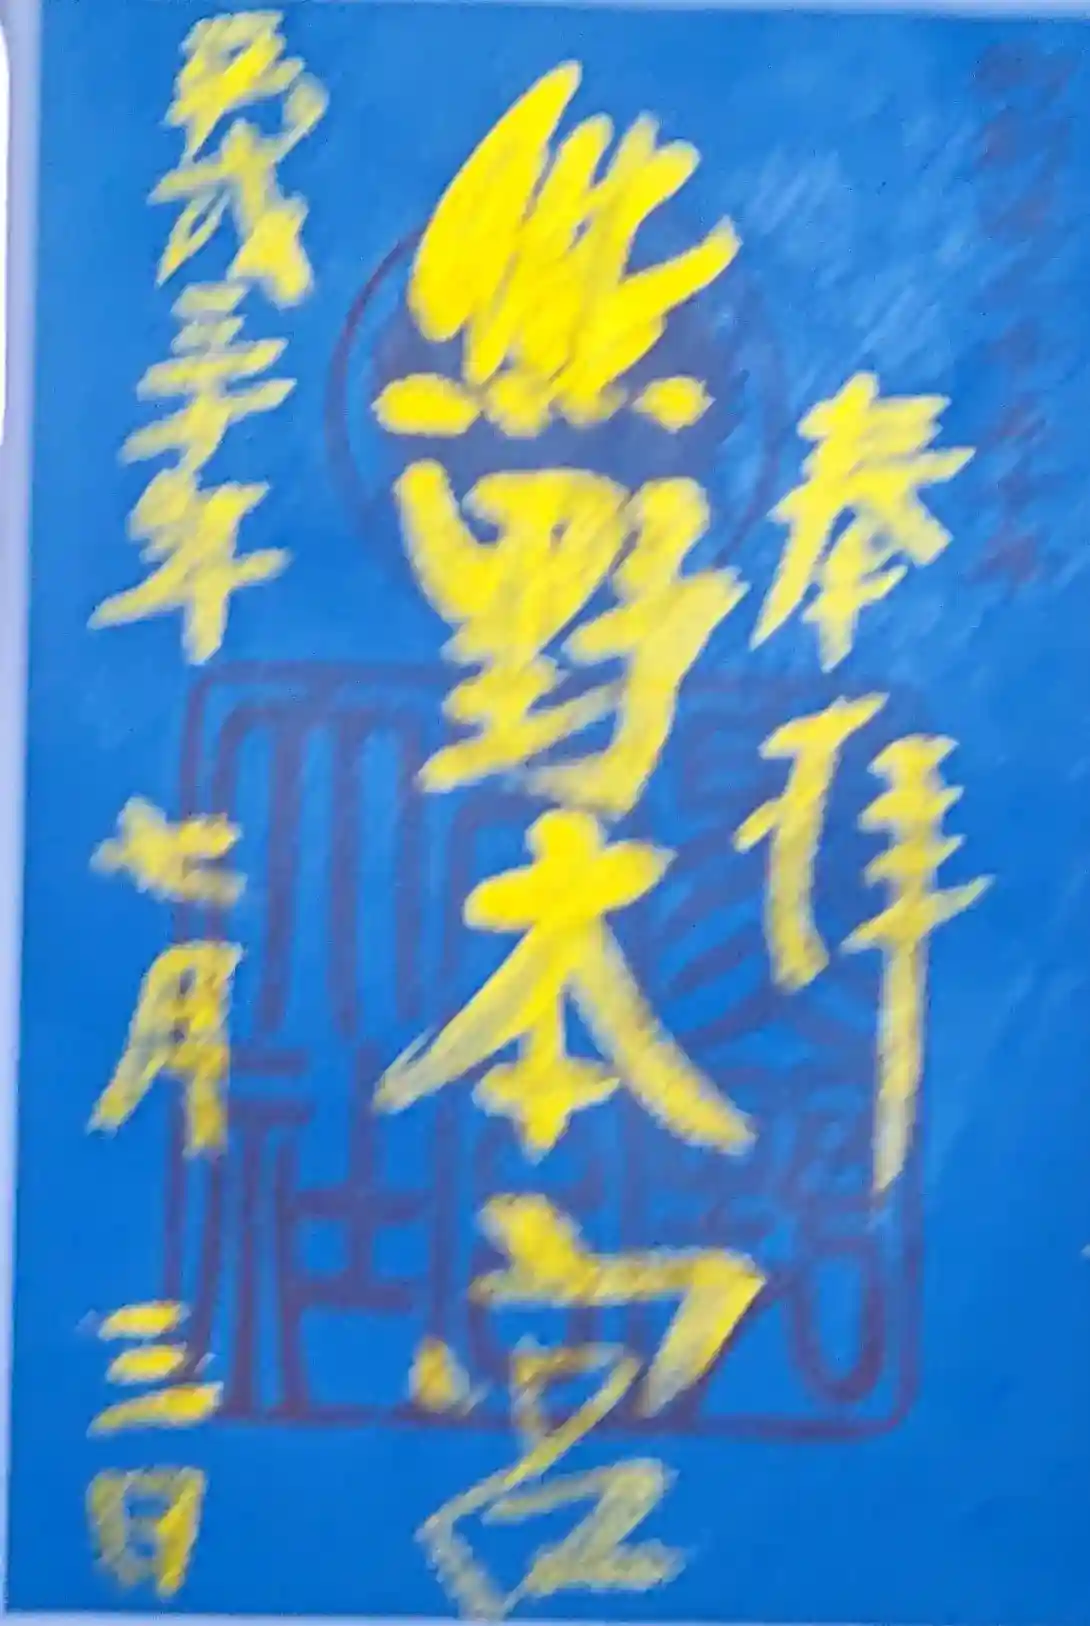 奉拝
熊野本宮
平成三十年七月三日